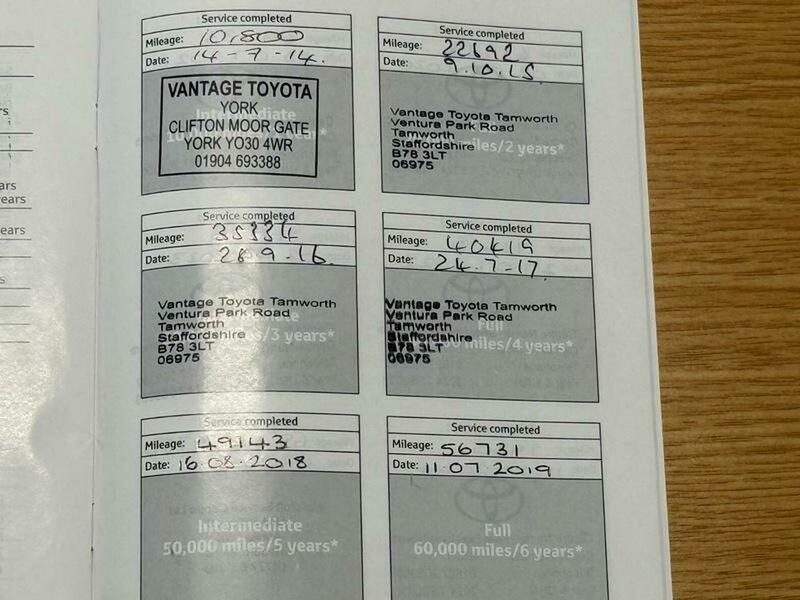 rs
ars
ears
ears
s
Service completed
Mileage: 10,800
Date: 14-7-14.
VANTAGE TOYOTA
YORK
CLIFTON MOOR GATE
YORK YO30 4WR
01904 693388
Intermediate
Service completed
Mileage: 22692
Date: 9.10.15
Vantage Toyota Tamworth
Ventura Park Road
Tamworth
Staffordshire
B78 3LT
06975
miles/2 years*
Service completed
Mileage: 35334
Date: 26.9.16.
Vantage Toyota Tamworth
Ventura Park Road
Tamworth
Staffordshire
B78 3LT
06975
Intermediate
miles/3 years*
Service completed
Mileage: 40419
Date: 24.7-17.
Vantage Toyota Tamworth
Ventura Park Road
Tamworth
Staffordshire
B78 3LT
06975
Full
miles/4 years*
Service completed
Mileage: 49143
Date: 16.08.2018
Intermediate
50,000 miles/5 years*
Service completed
Mileage: 56731
Date: 11.07.2019
Full
60,000 miles/6 years*